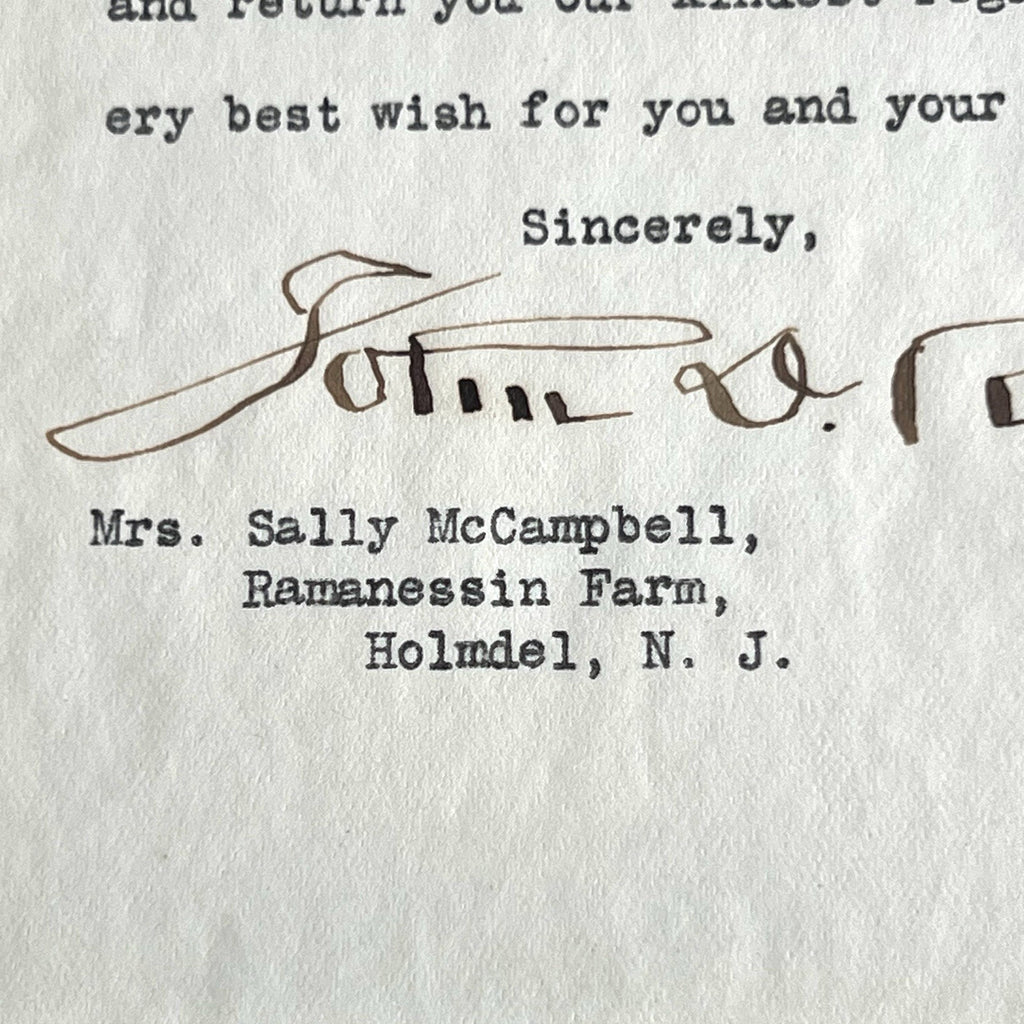 and return you our kindest reg
ery best wish for you and your
Sincerely,
John D.
Mrs. Sally McCampbell,
Ramanessin Farm,
Holmdel, N. J.